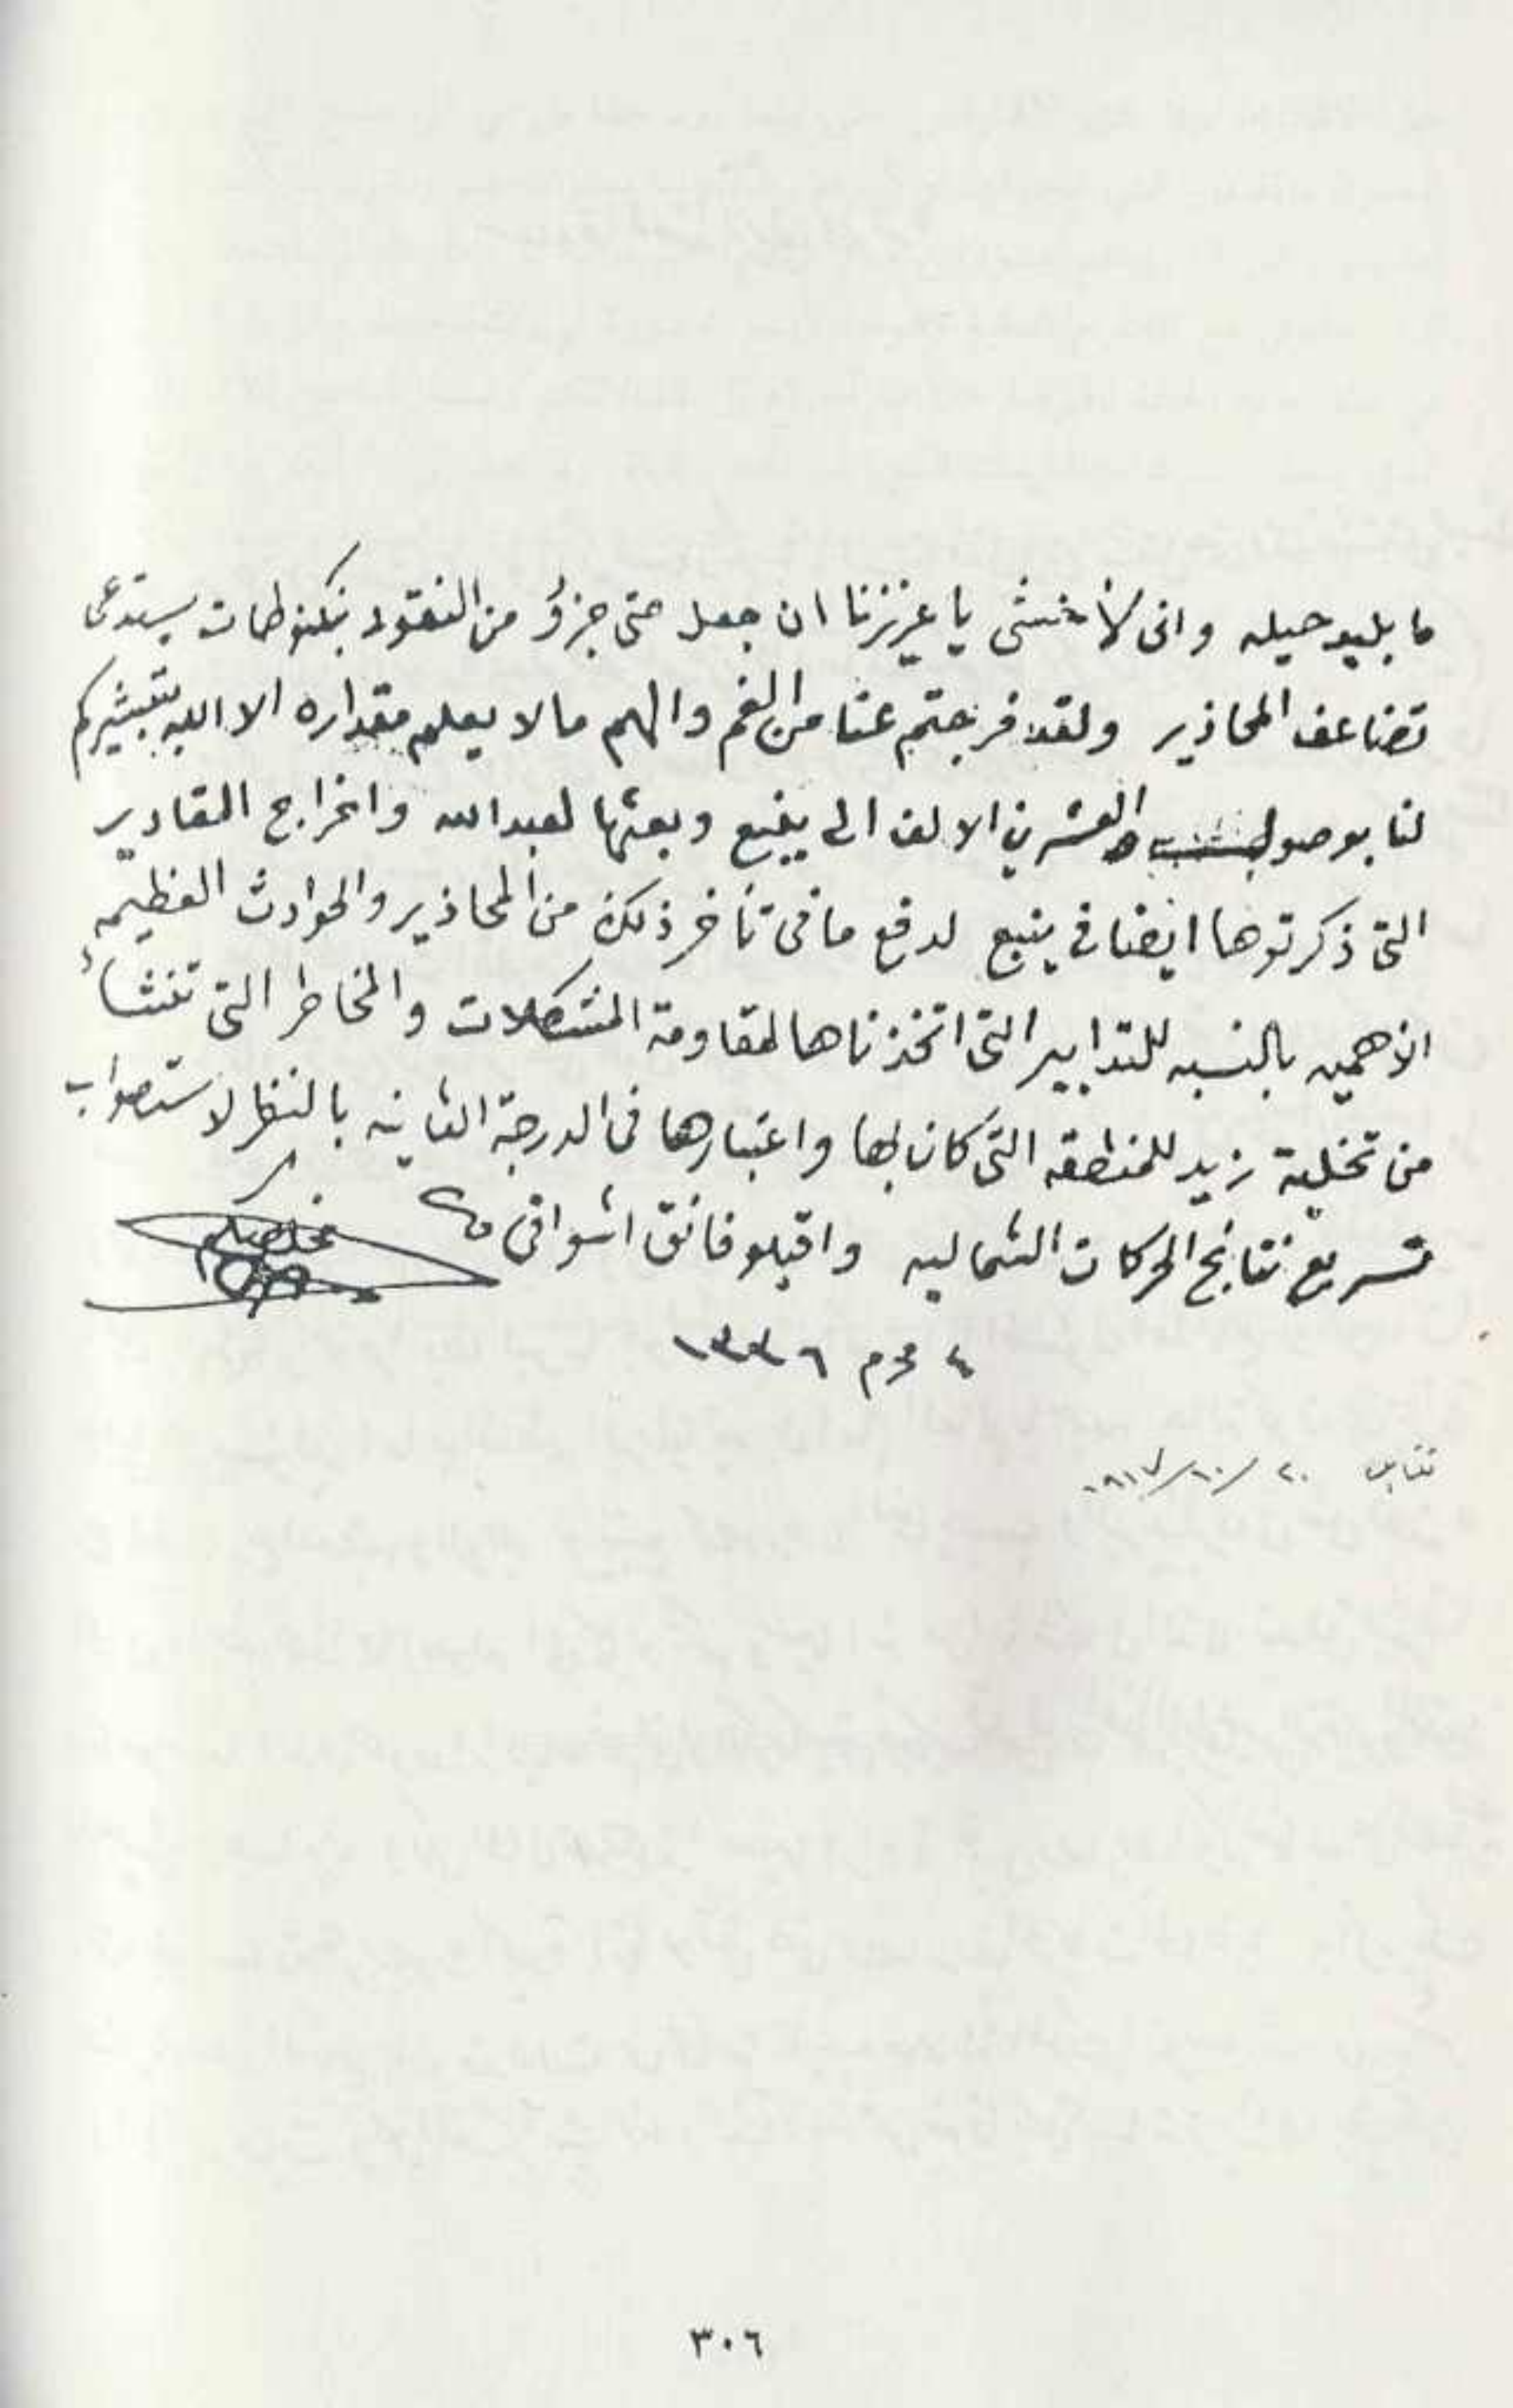 ما بليد حيله وانى لأخشى يا عزيزنا ان جعل حتى جزؤ من النقود بنكنوطات يستدعى
تضاعف المحاذير ولقد فرجتم عنا من الغم والهم مالا يعلم مقداره الا الله بتبشيركم
لنا بوصول العشرين الالف الى ينبع وبعثها لعبدالله واخراج المقادير
التى ذكرتوها ايضا فى ينبع لدفع ما فى تأخر ذلك من المحاذير والحوادث العظيمه
الأهميه بالنسبه للتدابير التى اتخذناها لمقاومة المشكلات والمخاطر التى تنشاء
من تخلية زيد للمنطقه التى كان بها واعتبارها فى الدرجة الثانيه بالنظر لاستصواب
تسريع نتائج الحركات الشماليه واقبلو فائق اشواقى
مخلصكم
٤ محرم ١٣٣٦
تقابل ٢٠/١٠/١٩١٧
٣٠٦